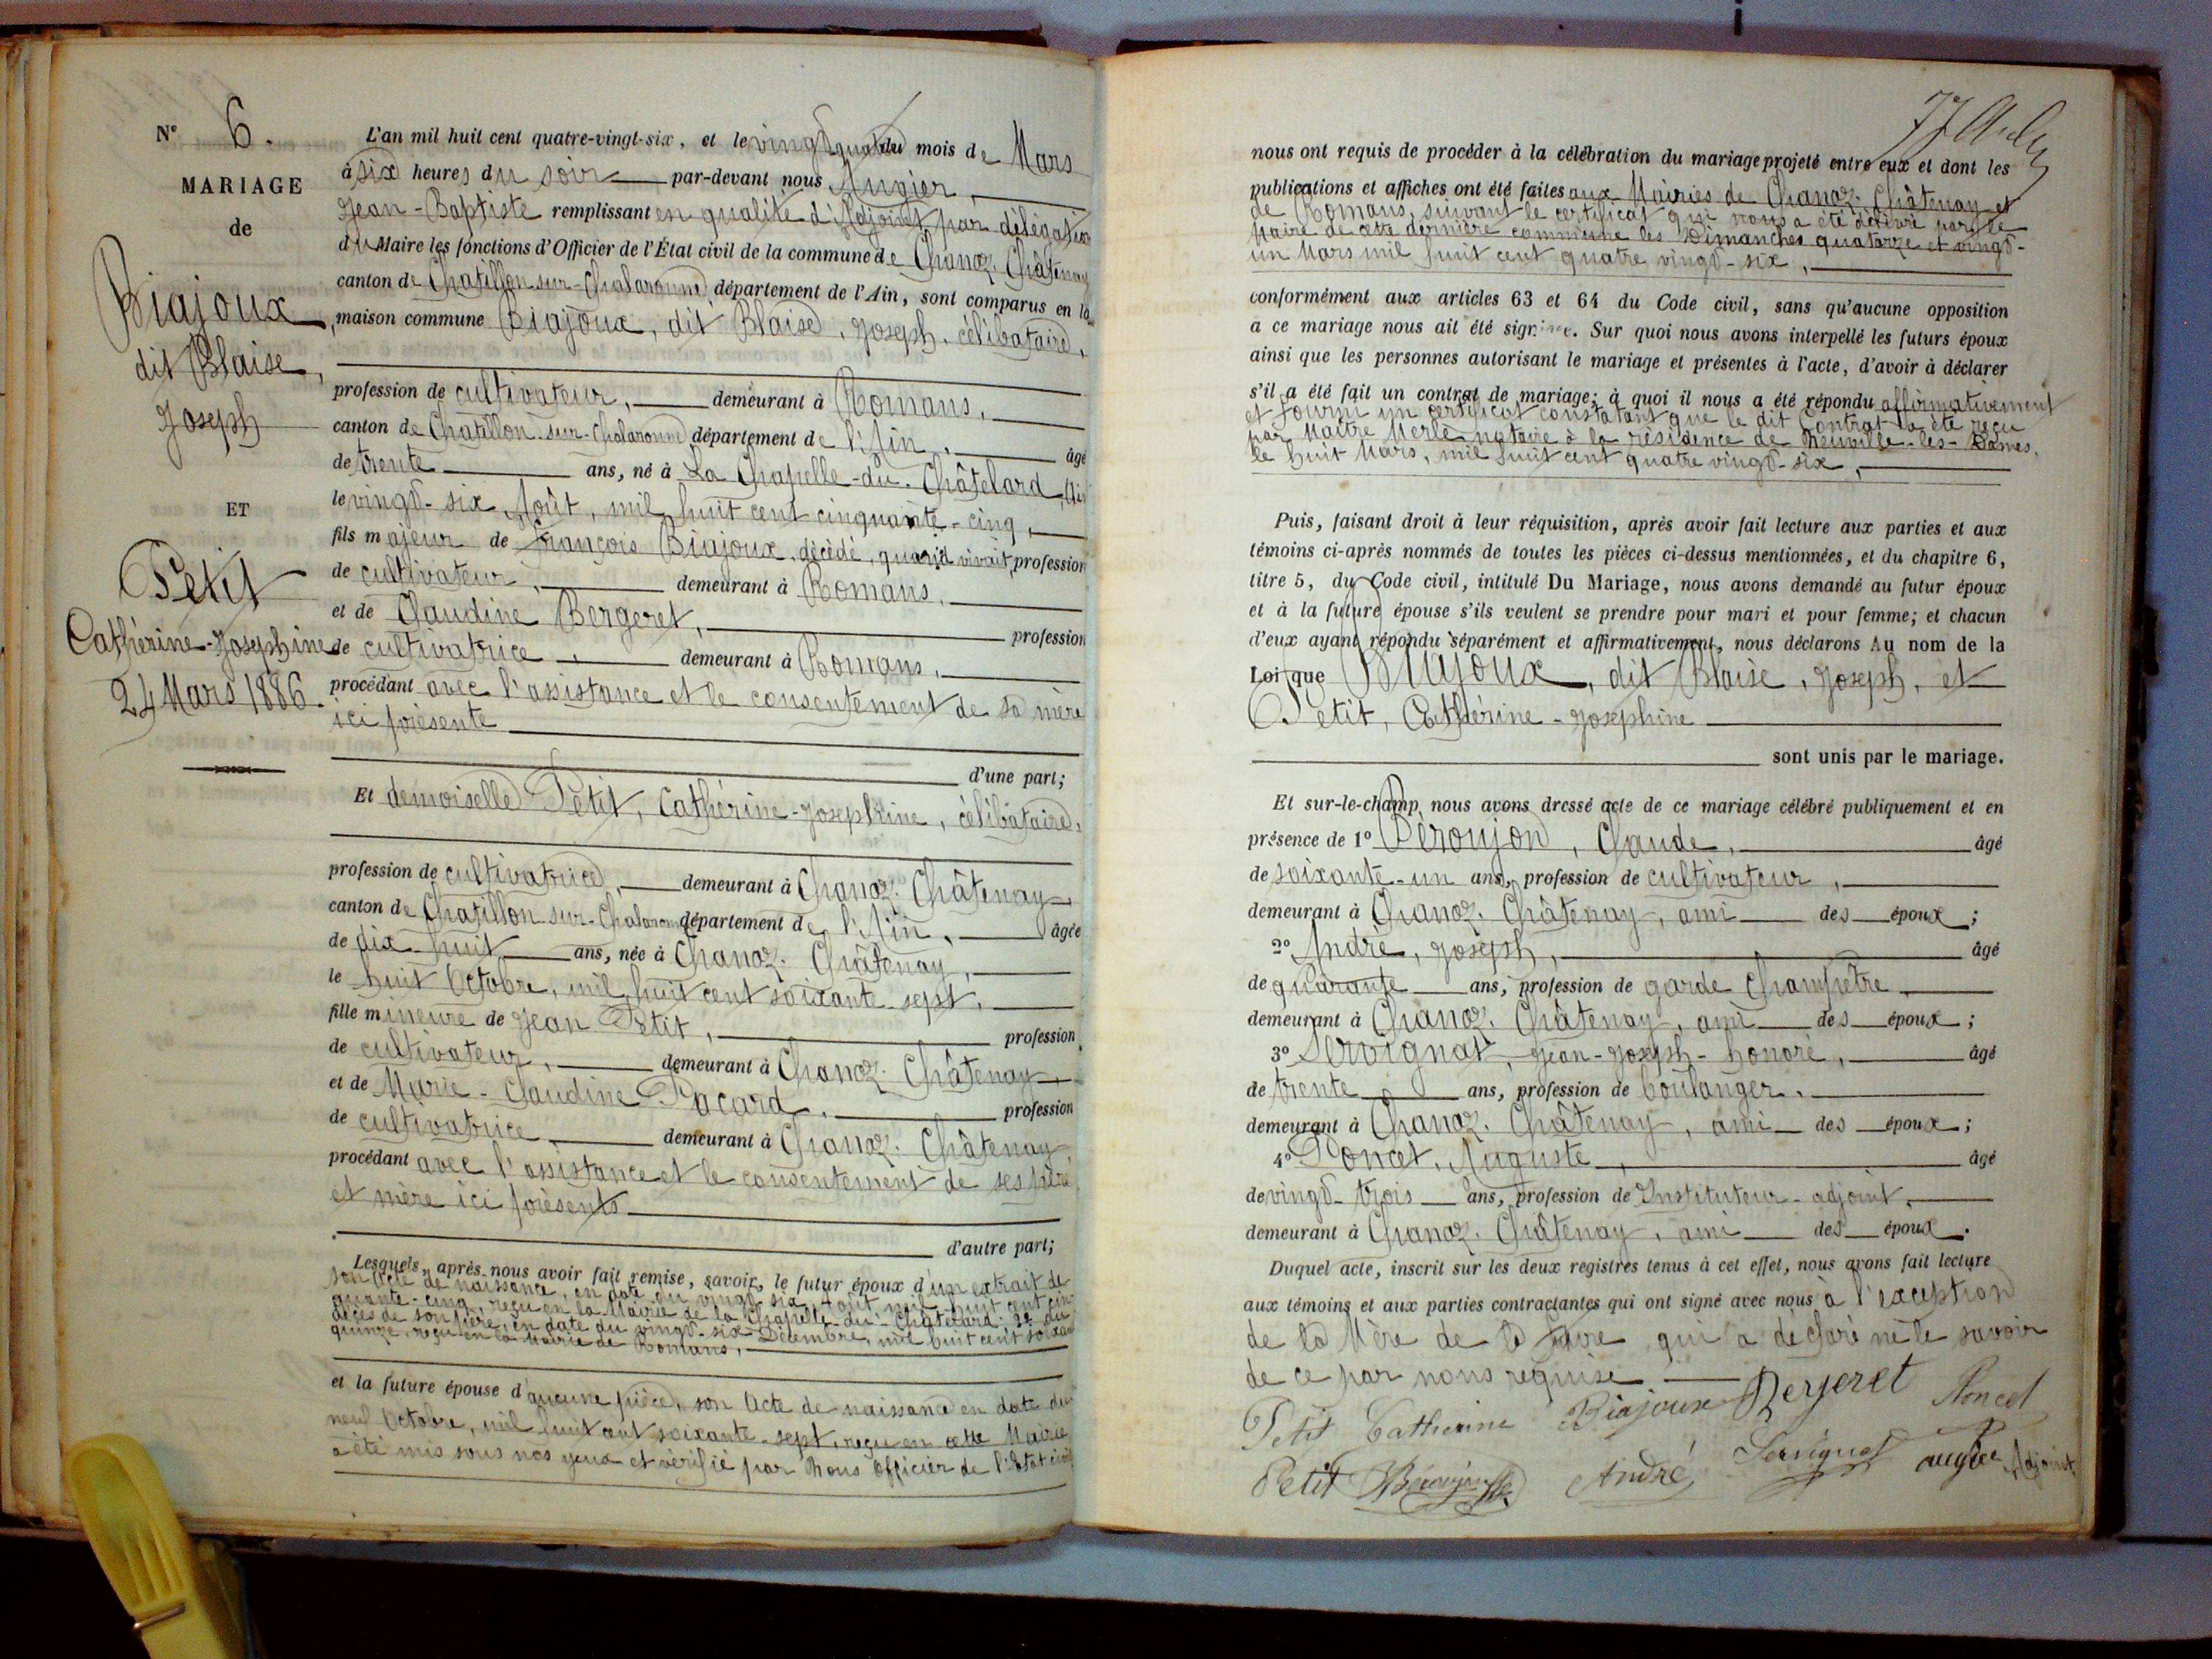 N° 6.
MARIAGE
de
Biajoux
dit Blaise,
Joseph
ET
Petit
Cathérine-Joséphine
24 Mars 1886.
L'an mil huit cent quatre-vingt-six, et le vingt quatre du mois de Mars
à six heures du soir par-devant nous Augier,
Jean-Baptiste remplissant en qualité d'Adjoint, par délégation
du Maire les fonctions d'Officier de l'État civil de la commune de Chanoz-Châtenay
canton de Chatillon-sur-Chalaronne, département de l'Ain, sont comparus en la
maison commune Biajoux, dit Blaise, Joseph, célibataire,
profession de cultivateur, demeurant à Romans,
canton de Chatillon-sur-Chalaronne département de l'Ain, âgé
de trente ans, né à La Chapelle-du-Châtelard, Ain
le vingt-six Août, mil huit cent cinquante-cinq,
fils majeur de François Biajoux, décédé, quand vivait, profession
de cultivateur, demeurant à Romans,
et de Claudine Bergeret, profession
de cultivatrice, demeurant à Romans,
procédant avec l'assistance et le consentement de sa mère
ici présente
d'une part;
Et demoiselle Petit, Cathérine-Joséphine, célibataire,
profession de cultivatrice, demeurant à Chanoz-Châtenay,
canton de Chatillon-sur-Chalaronne département de l'Ain, âgée
de dix-huit ans, née à Chanoz-Châtenay,
le huit Octobre, mil huit cent soixante-sept,
fille mineure de Jean Petit, profession
de cultivateur, demeurant à Chanoz-Châtenay,
et de Marie-Claudine Pacard, profession
de cultivatrice, demeurant à Chanoz-Châtenay,
procédant avec l'assistance et le consentement de ses père
et mère ici présents
d'autre part;
Lesquels, après nous avoir fait remise, savoir, le futur époux d'un extrait de
son acte de naissance, en date du vingt-six Août, mil huit cent cin-
quante-cinq, reçu en la Mairie de la Chapelle-du-Châtelard; 2° du
décès de son père, en date du vingt-six Décembre, mil huit cent soixan
quinze, reçu en la Mairie de Romans,
et la future épouse d'aucune pièce, son Acte de naissance en date du
neuf Octobre, mil huit cent soixante-sept, reçu en cette Mairie,
a été mis sous nos yeux et vérifié par Nous Officier de l'État civil
77
nous ont requis de procéder à la célébration du mariage projeté entre eux et dont les
publications et affiches ont été faites aux Mairies de Chanoz-Châtenay et
de Romans, suivant le certificat qui nous a été délivré par le
Maire de cette dernière commune les Dimanches quatorze et vingt-
un Mars mil huit cent quatre vingt-six,
conformément aux articles 63 et 64 du Code civil, sans qu'aucune opposition
a ce mariage nous ait été signifiée. Sur quoi nous avons interpellé les futurs époux
ainsi que les personnes autorisant le mariage et présentes à l'acte, d'avoir à déclarer
s'il a été fait un contrat de mariage; à quoi il nous a été répondu affirmativement
et fourni un certificat constatant que le dit Contrat a été reçu
par Maître Merle notaire à la résidence de Neuville-les-Dames,
le huit Mars, mil huit cent quatre vingt-six,
Puis, faisant droit à leur réquisition, après avoir fait lecture aux parties et aux
témoins ci-après nommés de toutes les pièces ci-dessus mentionnées, et du chapitre 6,
titre 5, du Code civil, intitulé Du Mariage, nous avons demandé au futur époux
et à la future épouse s'ils veulent se prendre pour mari et pour femme; et chacun
d'eux ayant répondu séparément et affirmativement, nous déclarons Au nom de la
Loi que Biajoux, dit Blaise, Joseph, et
Petit, Cathérine-Joséphine
sont unis par le mariage.
Et sur-le-champ nous avons dressé acte de ce mariage célébré publiquement et en
présence de 1° Péroujon, Claude, âgé
de soixante-un ans, profession de cultivateur,
demeurant à Chanoz-Châtenay, ami des époux;
2° André, Joseph, âgé
de quarante ans, profession de garde champêtre
demeurant à Chanoz-Châtenay, ami des époux;
3° Servignat, Jean-Joseph-Honoré, âgé
de trente ans, profession de boulanger,
demeurant à Chanoz-Châtenay, ami des époux;
4° Poncet, Auguste, âgé
de vingt-trois ans, profession de Instituteur-adjoint,
demeurant à Chanoz-Châtenay, ami des époux.
Duquel acte, inscrit sur les deux registres tenus à cet effet, nous avons fait lecture
aux témoins et aux parties contractantes qui ont signé avec nous à l'exception
de la Mère de la qui a déclaré ne le savoir
de ce par nous requise
Petit Catherine Biajoux Bergeret Poncet
Petit Péroujon André Servignat augier Adjoint